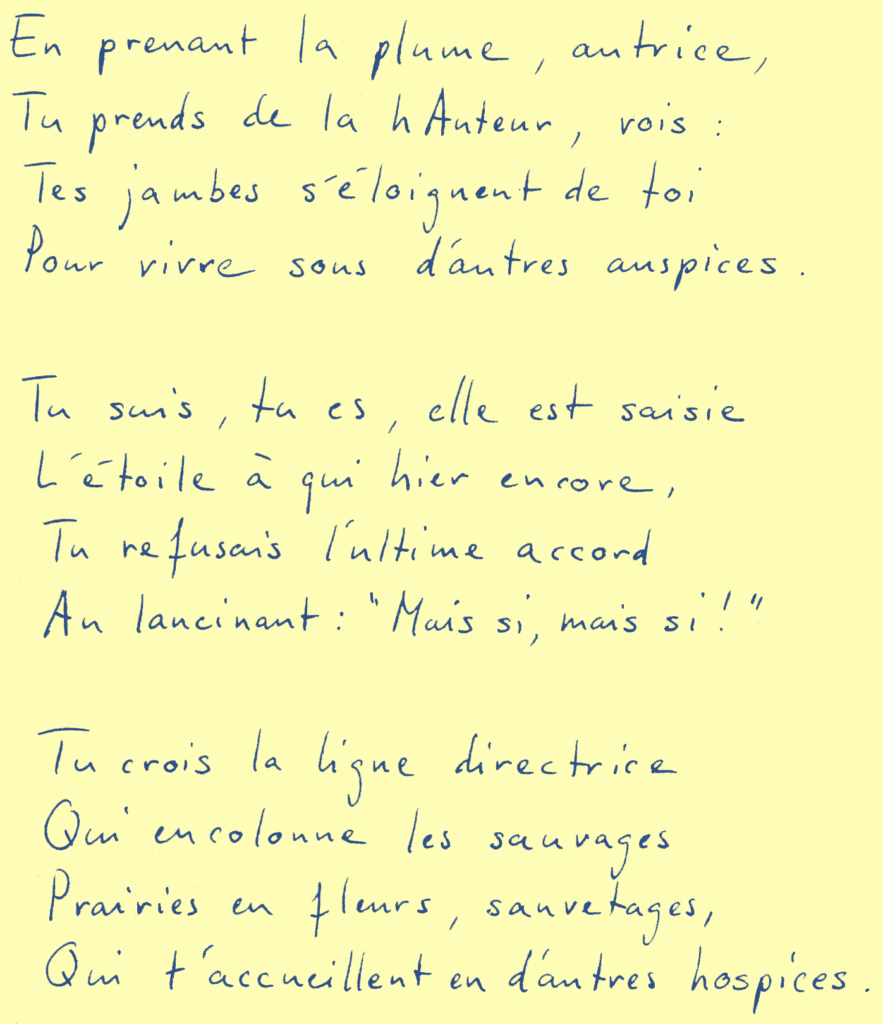 En prenant la plume, autrice,
Tu prends de la hAuteur, vois :
Tes jambes s'éloignent de toi
Pour vivre sous d'autres auspices.
Tu suis, tu es, elle est saisie
L'étoile à qui hier encore,
Tu refusais l'ultime accord
Au lancinant : "Mais si, mais si !"
Tu crois la ligne directrice
Qui encolonne les sauvages
Prairies en fleurs, sauvetages,
Qui t'accueillent en d'autres hospices.